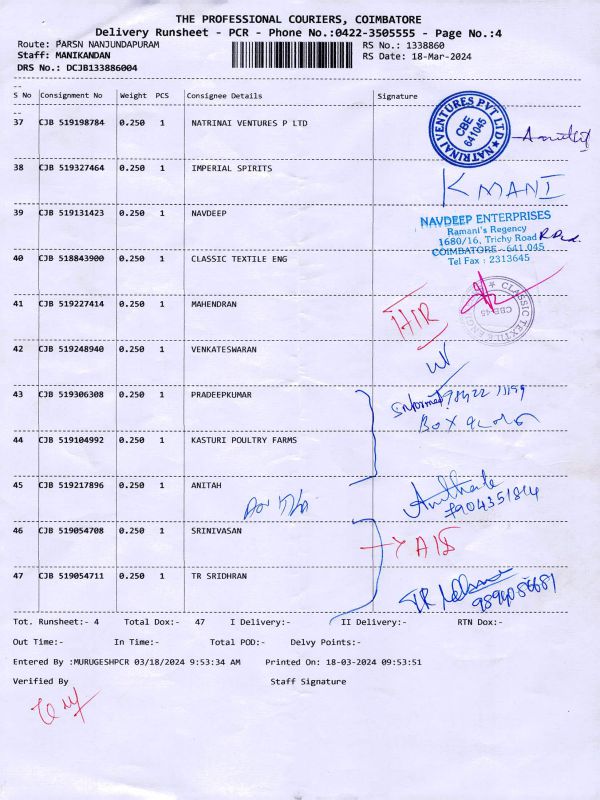 THE PROFESSIONAL COURIERS, COIMBATORE
Delivery Runsheet - PCR - Phone No.:0422-3505555 - Page No.:4
Route: PARSN NANJUNDAPURAM RS No.: 1338860
Staff: MANIKANDAN RS Date: 18-Mar-2024
DRS No.: DCJB133886004
S No Consignment No Weight PCS Consignee Details Signature
37 CJB 519198784 0.250 1 NATRINAI VENTURES P LTD
NATRINAI VENTURES PVT LTD
CBE
641045
38 CJB 519327464 0.250 1 IMPERIAL SPIRITS
K MANI
39 CJB 519131423 0.250 1 NAVDEEP
NAVDEEP ENTERPRISES
Ramani's Regency
1680/16, Trichy Road
COIMBATORE - 641 045
Tel Fax : 2313645
40 CJB 518843900 0.250 1 CLASSIC TEXTILE ENG
CLASSIC TEXTILE
CBE-45
41 CJB 519227414 0.250 1 MAHENDRAN
42 CJB 519248940 0.250 1 VENKATESWARAN
43 CJB 519306308 0.250 1 PRADEEPKUMAR
44 CJB 519104992 0.250 1 KASTURI POULTRY FARMS
45 CJB 519217896 0.250 1 ANITAH
7904351814
46 CJB 519054708 0.250 1 SRINIVASAN
47 CJB 519054711 0.250 1 TR SRIDHRAN
Tot. Runsheet:- 4 Total Dox:- 47 I Delivery:- II Delivery:- RTN Dox:-
Out Time:- In Time:- Total POD:- Delvy Points:-
Entered By :MURUGESHPCR 03/18/2024 9:53:34 AM Printed On: 18-03-2024 09:53:51
Verified By Staff Signature